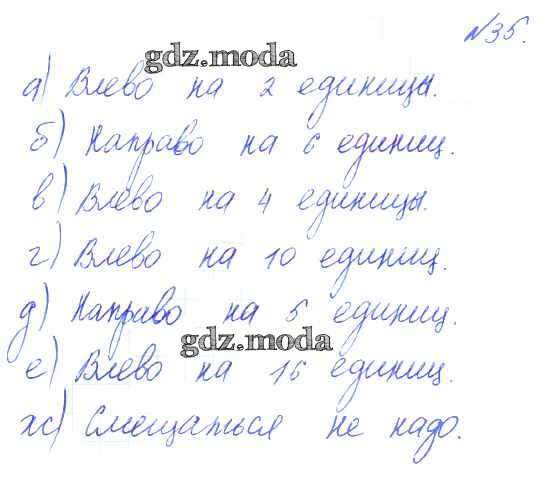 №35.
gdz.moda
а) Влево на 2 единицы.
б) Направо на 6 единиц.
в) Влево на 4 единицы.
г) Влево на 10 единиц.
д) Направо на 5 единиц.
gdz.moda
е) Влево на 16 единиц.
ж) Смещаться не надо.